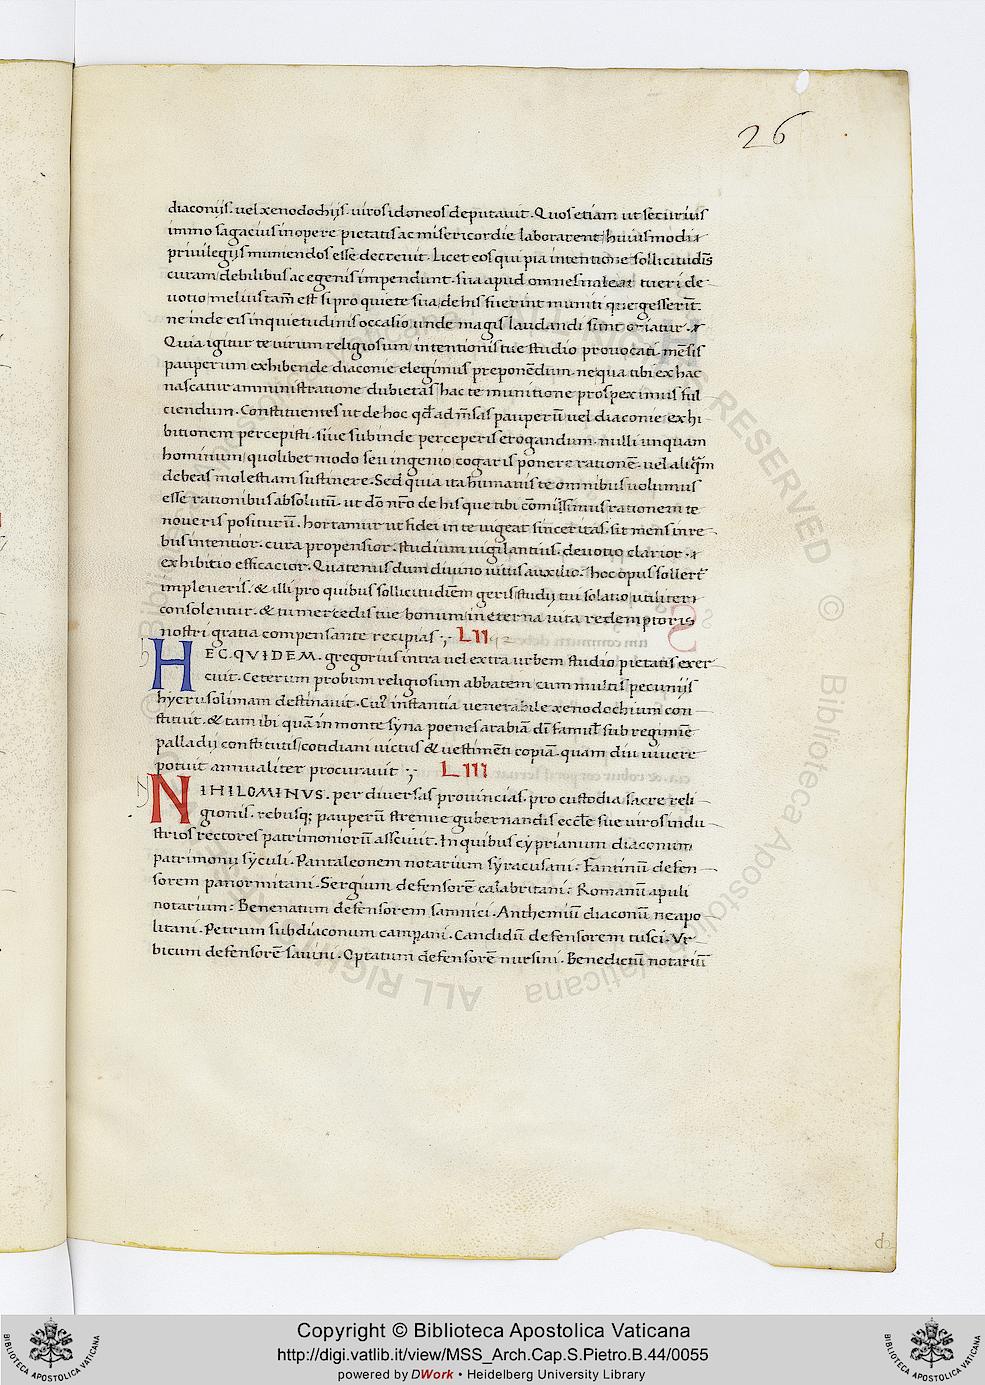 26
diaconijs. uel xenodochijs. uiros idoneos deputauit. Quos etiam ut securius
immo sagacius in opere pietatis ac misericordie laborarent / huiusmodi
priuilegijs muniendos esse decreuit. Licet eos qui pia intentione sollicitudīs
curam / debilibus ac egenis impendunt. sua apud omnes ualeat tueri de-
uotio / melius tam̄ est si pro quiete sua / de his fuerint muniti que gesserīt.
ne inde eis inquietudinis occasio unde magis laudandi sunt oriatur.
Quia igitur te uirum religiosum / intentionis tue studio prouocati. mēsis
pauperum exhibende diaconie elegimus preponēdum. ne qua tibi ex hac
nascatur amministratione dubietas / hac te munitione prospeximus ful
ciendum. Constituentes ut de hoc qd̄ ad m̄sas pauperū uel diaconie exhi-
bitionem percepisti. siue subinde perceperis erogandum. nulli unquam
hominum / quolibet modo seu ingenio cogaris ponere rationē. uel aliq̄m
debeas molestiam sustinere. Sed quia ita humanis te omnibus uolumus
esse rationibus absolutū. ut dō nr̄o de his que tibi cōmisimus rationem te
noueris positurū. hortamur ut fidei in te uigeat sinceritas. sit mens in re
bus intentior. cura propensior. studium uigilantius. deuotio clarior.
exhibitio efficacior. Quatenus dum diuino uitus auxilio. hoc opus sollert̄
impleueris. & illi pro quibus sollicitudiēm geris studij tui solatio utiliter
consolentur. & tu mercedis tue bonum in eterna uita redemptoris
nostri gratia compensante recipias ;- LII
HEC. QVIDEM. gregorius intra uel extra urbem studio pietatis exer-
cuit. Ceterum probum religiosum abbatem cum multis pecunijs
hyerusolimam destinauit. Cui᷒ instantia uenerabile xenodochium con-
stituit. & tam ibi quā in monte syna poenes arabiā dī famul̄ sub regimīe
palladij constitutis / cotidiani uictus & uestimēti copiā. quam diu uiuere
potuit annualiter procurauit ;- LIII
NIHILOMINVS. per diuersas prouincias. pro custodia sacre reli-
gionis. rebusq; pauperū strenue gubernandis eccl̄e sue uiros indu-
strios rectores patrimoniorū asciuit. In quibus cyprianum diaconum
patrimonij syculi. Pantaleonem notarium syracusani. Fantinū defen-
sorem panormitani. Sergium defensorē calabritani: Romanū apuli
notarium: Benenatum defensorem samnici. Anthemiū diaconū neapo-
litani. Petrum subdiaconum campani. Candidū defensorem tusci. Vr-
bicum defensorē sauini. Optatum defensorē nursini. Benedictū notariū
Copyright © Biblioteca Apostolica Vaticana
http://digi.vatlib.it/view/MSS_Arch.Cap.S.Pietro.B.44/0055
powered by DWork • Heidelberg University Library